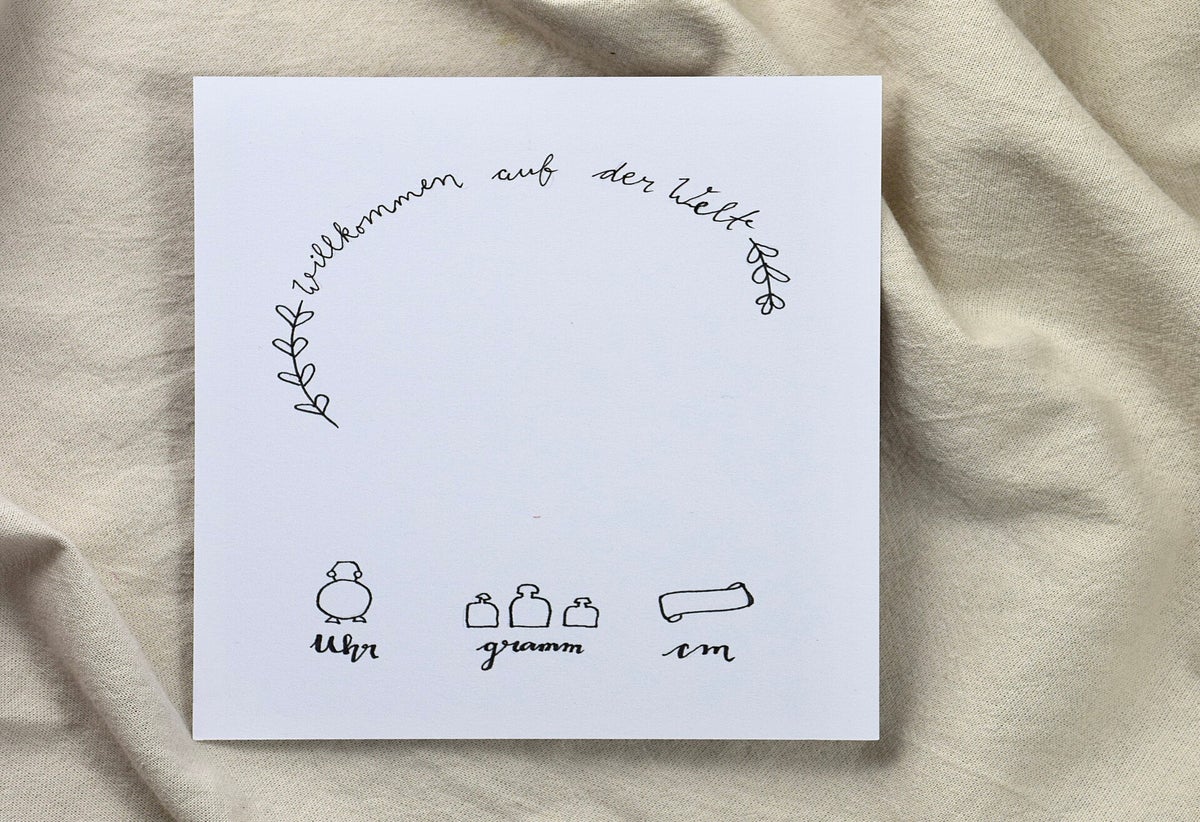 Willkommen auf der Welt
Uhr gramm cm